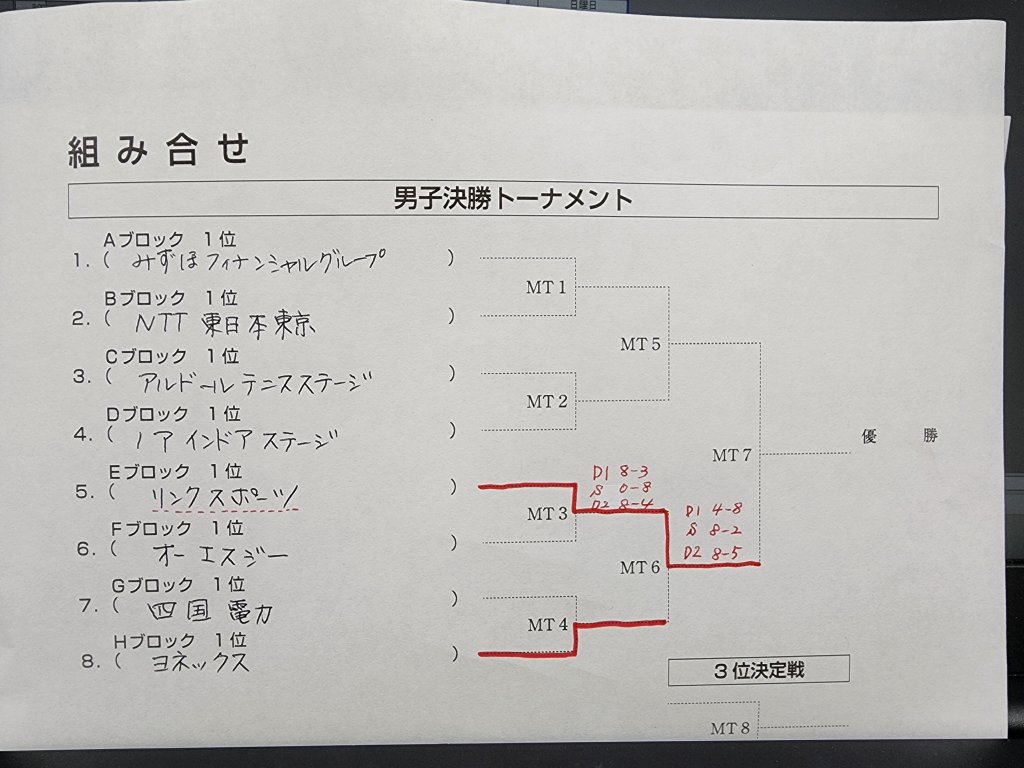 日曜日
組み合せ
男子決勝トーナメント
Aブロック 1位
1.( みずほフィナンシャルグループ )
MT1
Bブロック 1位
2.( NTT 東日本東京 )
MT5
Cブロック 1位
3.( アルドールテニスステージ )
MT2
Dブロック 1位
4.( ノアインドアステージ )
優 勝
MT7
Eブロック 1位
5.( リンクスポーツ )
D1 8-3
S 0-8
D2 8-4
MT3
D1 4-8
S 8-2
D2 8-5
Fブロック 1位
6.( オーエスジー )
MT6
Gブロック 1位
7.( 四国電力 )
MT4
Hブロック 1位
8.( ヨネックス )
3位決定戦
MT8